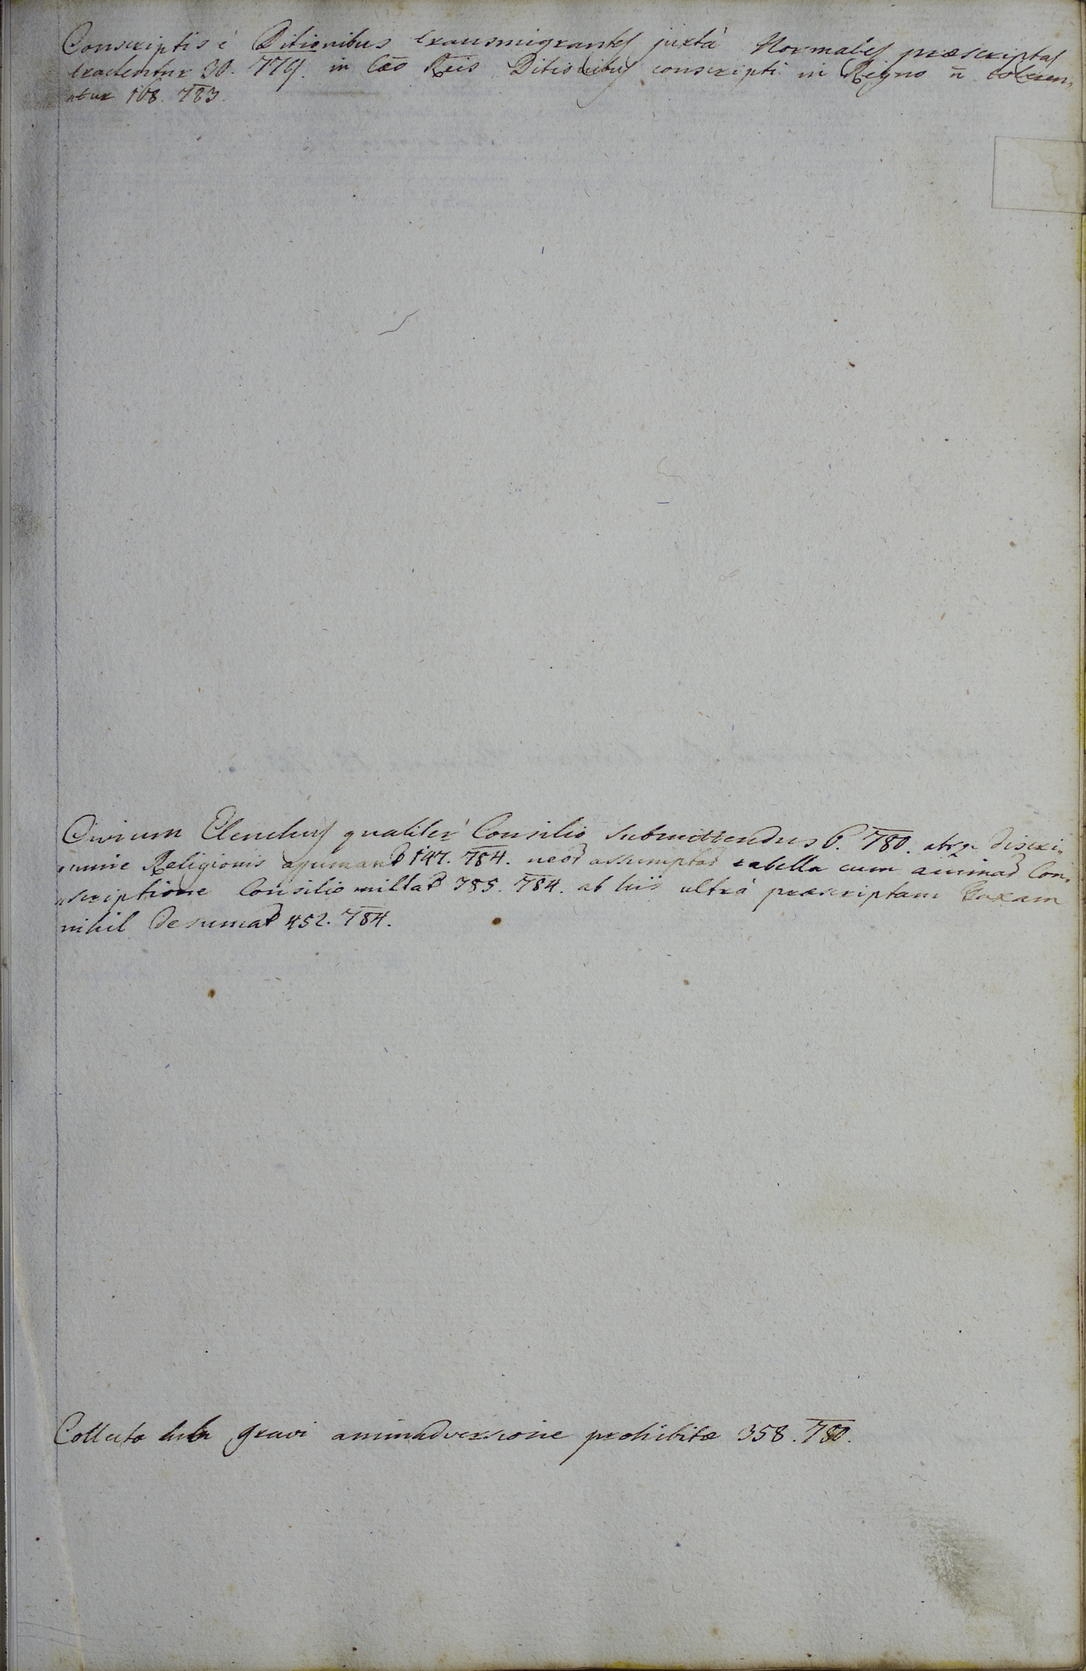 Conscriptis é Ditionibus transmigrantes juxta Normales præscriptas
tractentur 30. 779. in Cæo Reis Ditionibus conscripti in Regno n̄ toleren,
ntur 108. 783.
Civium Elenchus qualiter Consilio submittendus 6. 780. absq. discri,
mine Religionis 147. 784. assumptor tabella cum Con,
scriptione Consilio mittat 385. 784. ab his ultrá præscriptam Taxam
nihil desumat 452. 784.
Collecta sub gravi animadversione prohibitæ 358. 780.